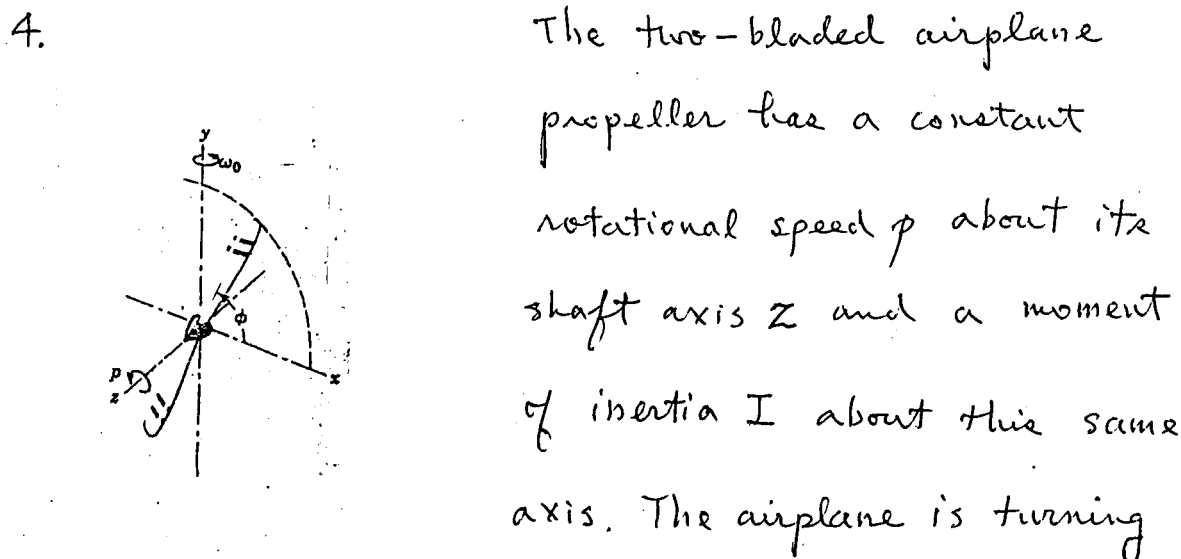 4.
The two-bladed airplane
propeller has a constant
rotational speed p about its
shaft axis Z and a moment
of inertia I about this same
axis. The airplane is turning
y
ω0
φ
x
p
z